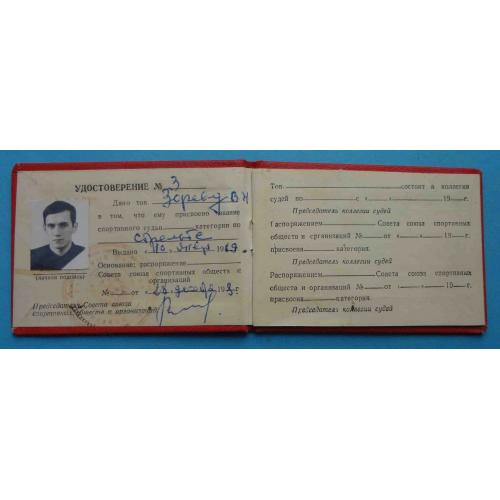 УДОСТОВЕРЕНИЕ № 3
Дано тов. Зореву В Н
в том, что ему присвоено звание
спортивного судьи категории по
Выдано 19
Основание: распоряжение
Совета союза спортивных обществ и
организаций
№ от « 19 г.
(личная подпись)
Председатель Совета союза
спортивных обществ и организаций
Тов. состоит в коллегии
судей по с « » 19 г.
Председатель коллегии судей
Распоряжением Совета союза спортивных
обществ и организаций № от « » 19 г.
присвоена категория.
Председатель коллегии судей
Распоряжением Совета союза спортивных
обществ и организаций № от « » 19 г.
присвоена категория.
Председатель коллегии судей